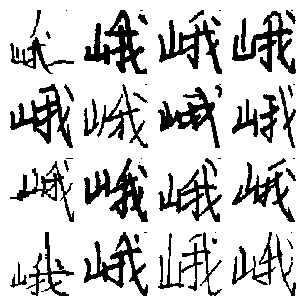 峨峨峨峨
峨峨峨峨
峨峨峨峨
峨峨峨峨